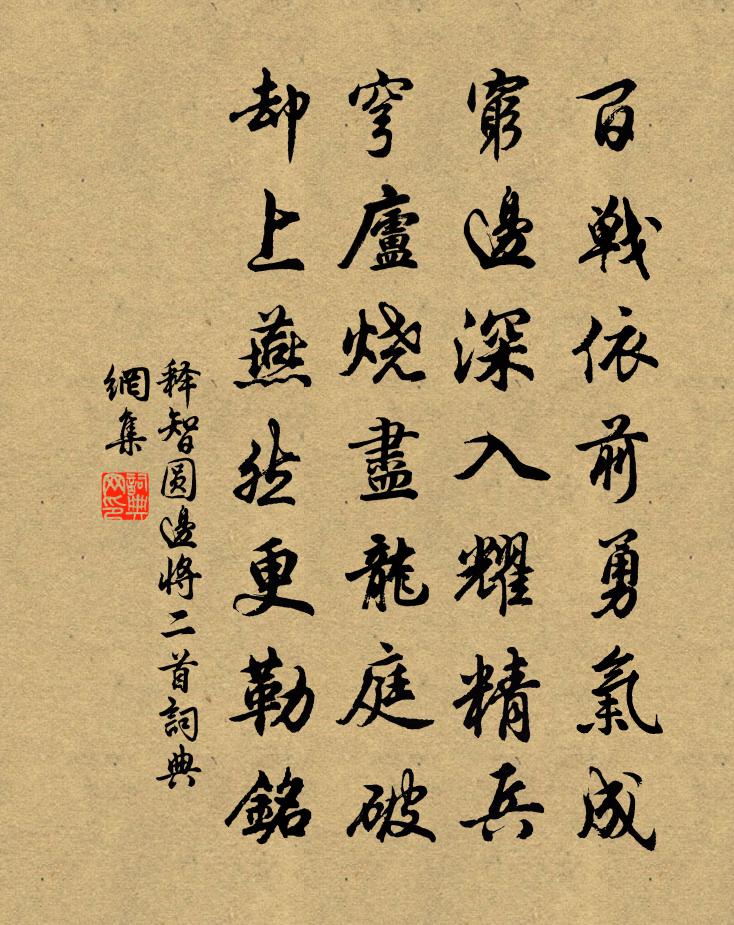 百戰依前勇氣成
窮邊深入耀精兵
穹廬燒盡龍庭破
却上燕然更勒銘
释智圆邊将二首詞典
網集
詞典
网印